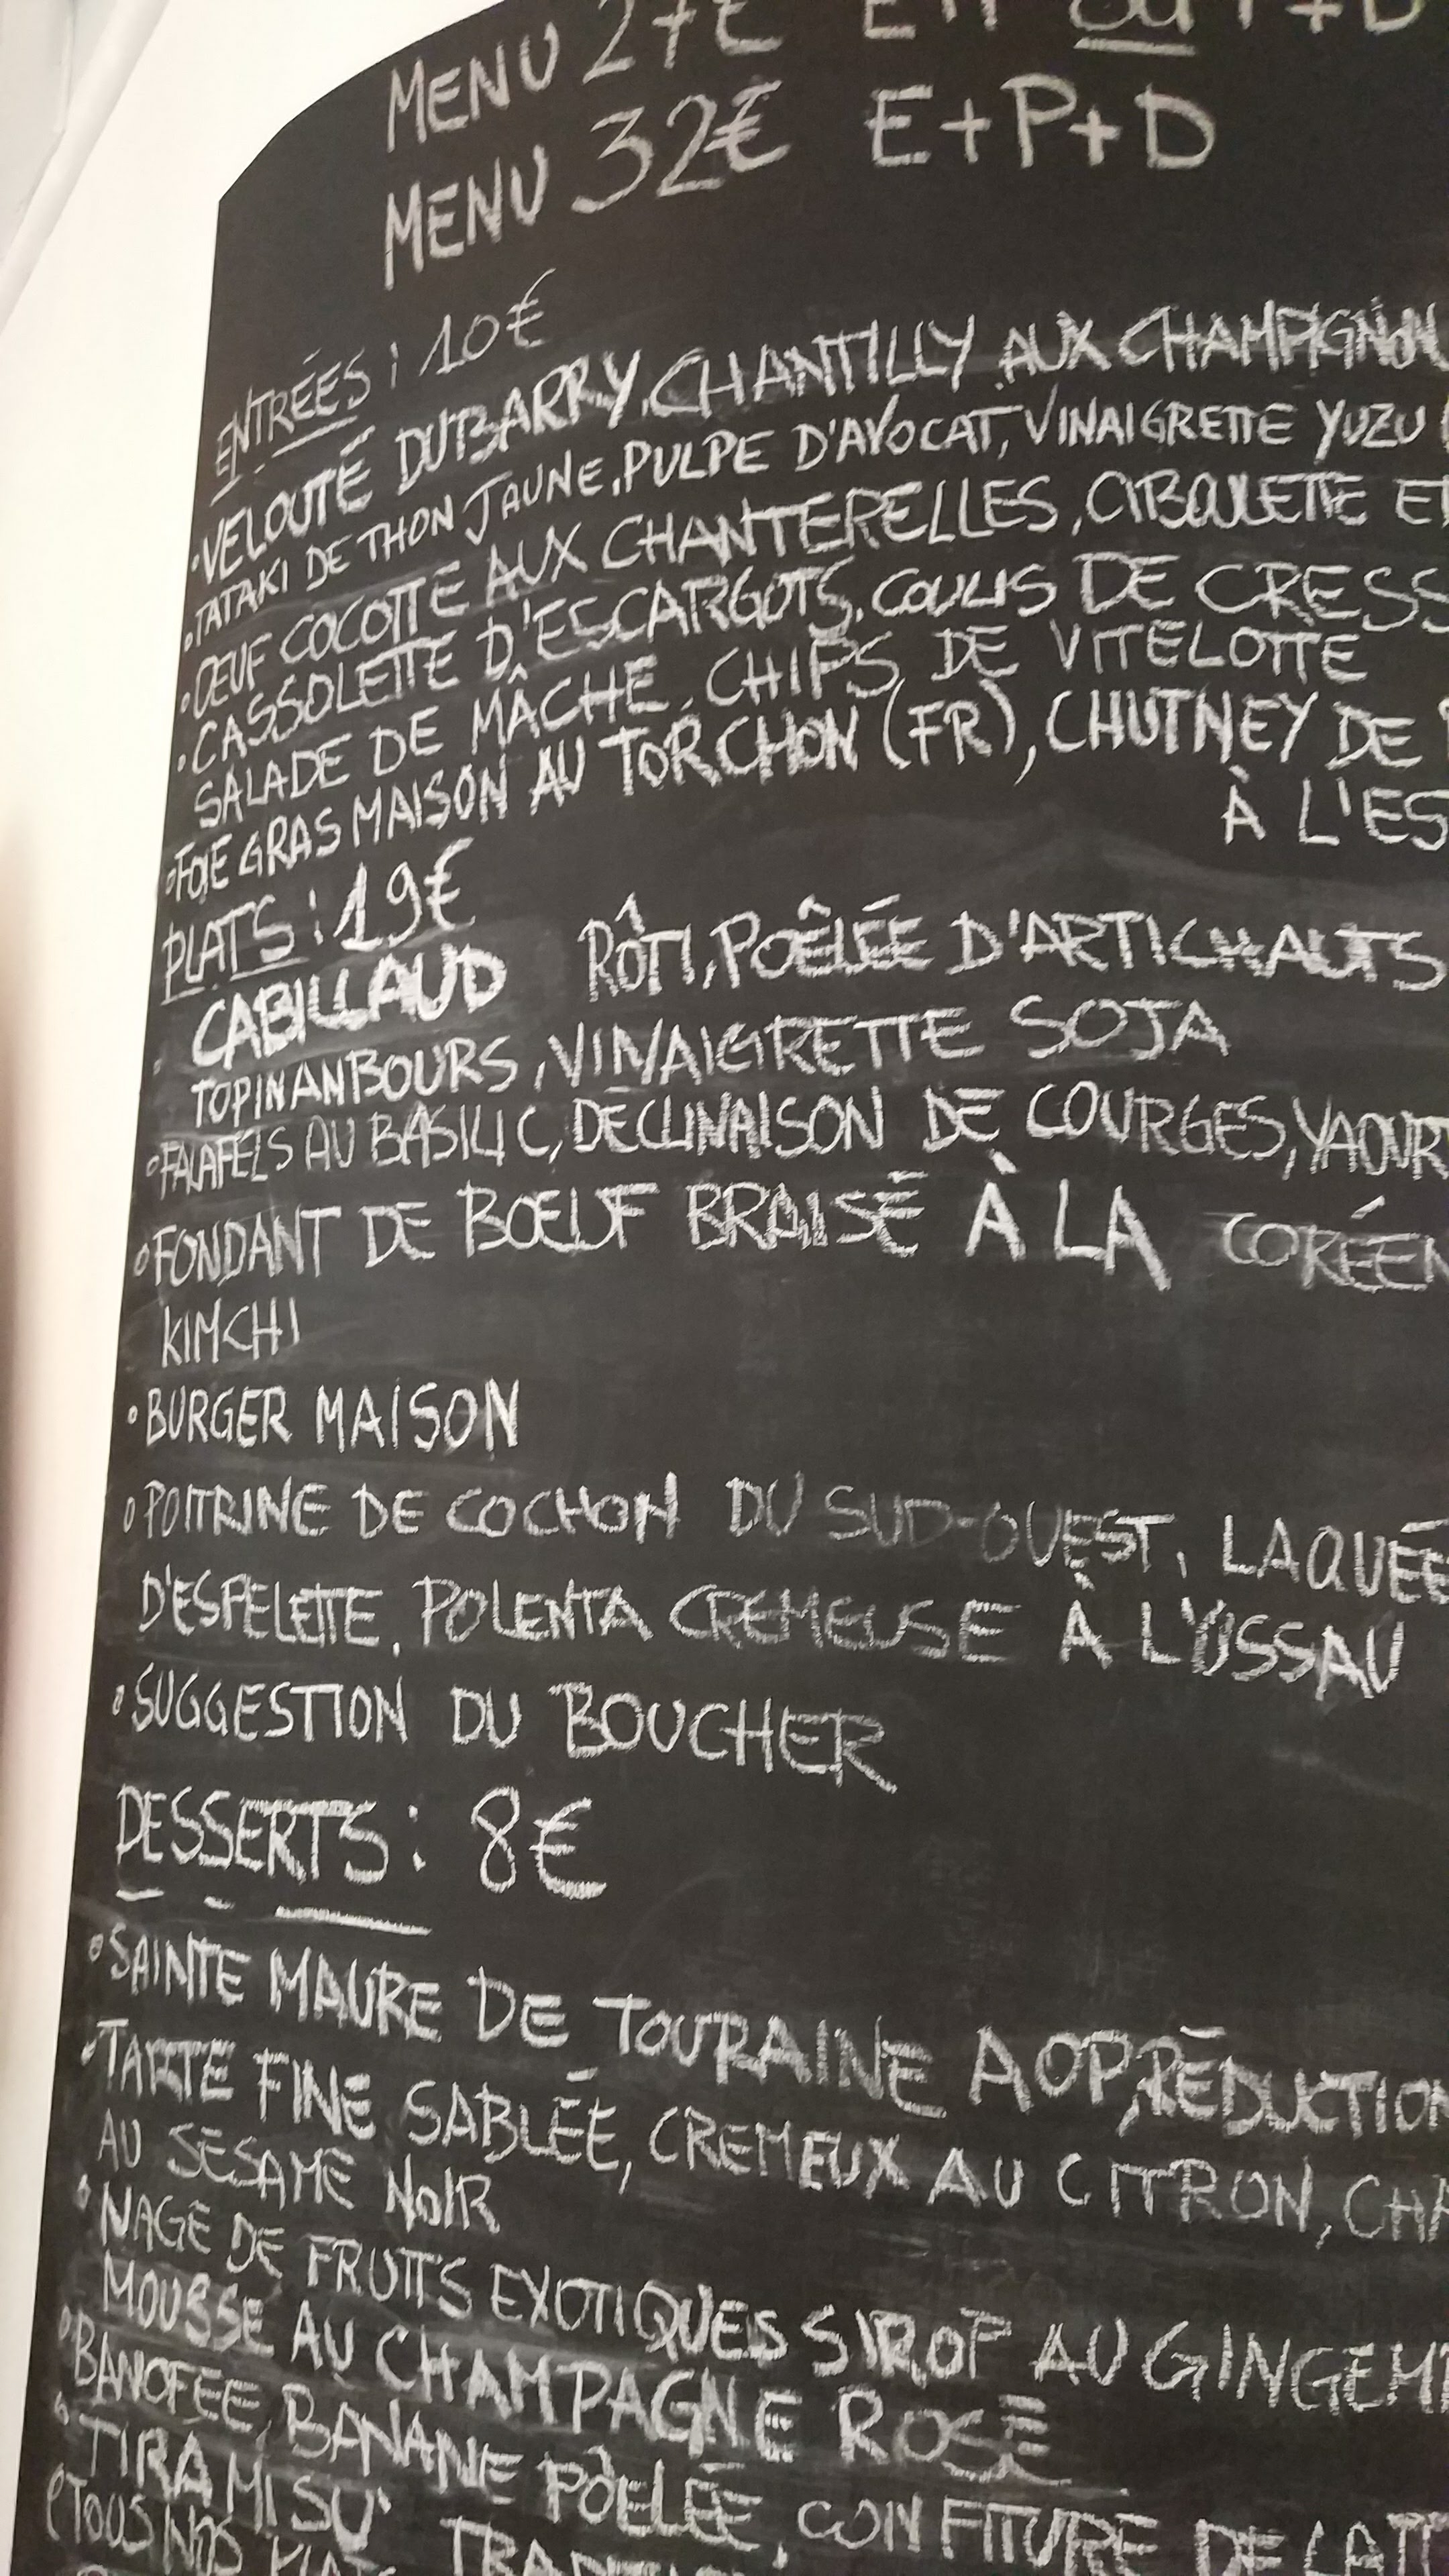 MENU 27€ E+P OU P+D
MENU 32€ E+P+D
ENTRÉES : 10€
• VELOUTÉ DUBARRY, CHANTILLY AUX CHAMPIGNON
• TATAKI DE THON JAUNE, PULPE D'AVOCAT, VINAIGRETTE YUZU
• OEUF COCOTTE AUX CHANTERELLES, CIBOULETTE ET
• CASSOLETTE D'ESCARGOTS, COULIS DE CRESS
SALADE DE MÂCHE, CHIPS DE VITELOTTE
• FOIE GRAS MAISON AU TORCHON (FR), CHUTNEY DE
À L'ES
PLATS : 19€
• CABILLAUD RÔTI, POÊLÉE D'ARTICHAUTS
TOPINANBOURS, VINAIGRETTE SOJA
• FALAFELS AU BASILIC, DÉCLINAISON DE COURGES, YAOUR
• FONDANT DE BOEUF BRAISÉ À LA CORÉEN
KIMCHI
• BURGER MAISON
• POITRINE DE COCHON DU SUD-OUEST, LAQUÉE
D'ESPELETTE, POLENTA CREMEUSE À L'OSSAU
• SUGGESTION DU BOUCHER
DESSERTS : 8€
• SAINTE MAURE DE TOURAINE AOP, RÉDUCTION
• TARTE FINE SABLÉE, CREMEUX AU CITRON, CHA
AU SESAME NOIR
• NAGE DE FRUITS EXOTIQUES SIROP AU GINGEM
MOUSSE AU CHAMPAGNE ROSÉ
• BANOFEE, BANANE PÔELÉE, CONFITURE DE LAIT
• TIRAMISU
(TOUS NOS PLATS